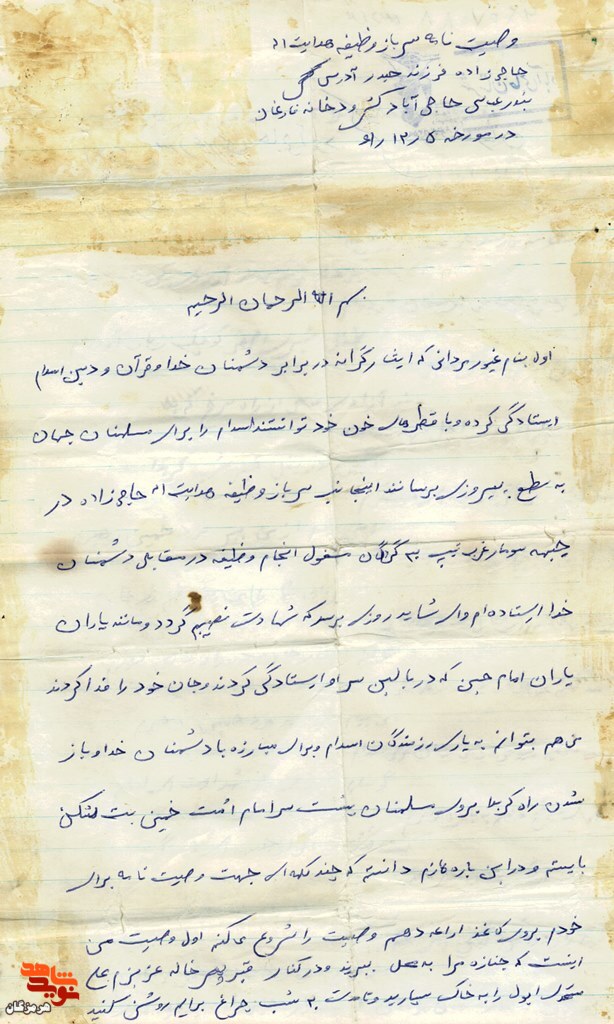 وصیت نامه سرباز وظیفه هدایت اله
حاجی زاده فرزند حیدر آدرس
بندرعباس حاجی آباد رودخانه فارغان
در مورخه
بسم الله الرحمان الرحیم
اول بنام غیور مردانی که ایثارگرانه در برابر دشمنان خدا و قرآن و دین اسلام
ایستادگی کرده و با قطرهای خون خود توانستند اسلام را برای مسلمانان جهان
به سطح پیروزی برسانند اینجانب سرباز وظیفه هدایت اله حاجی زاده در
جبهه سومار غرب تیپ مشغول انجام وظیفه در مقابل دشمنان
خدا ایستاده ام وای شاید روزی برسد که شهادت نصیبم گردد و مانند یاران
یاران امام حسین که در بالین سر او ایستادگی کردند و جان خود را فدا کردند
من هم بتوانم به یاری رزمندگان اسلام و برای مبارزه با دشمنان خدا و باز
شدن راه کربلا بروی مسلمانان پشت سر امام امت خمینی بت شکن
بایستم و در این باره لازم دانستم که چند کلمه ای جهت وصیت نامه برای
خودم بروی کاغذ ادامه دهم وصیت را شروع میکنم اول وصیت من
اینست که جنازه مرا به محل ببرید و در کنار قبر پسر خاله عزیزم علی
اول را به خاک سپارید و تا مدت به شب چراغ برایم روشن کنید
نوید شاهد
هرمزگان